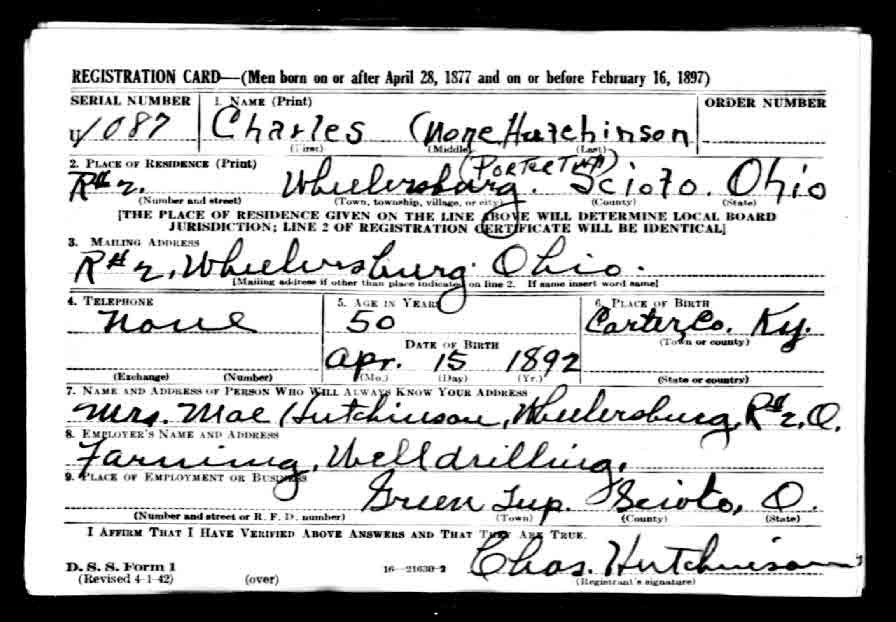 REGISTRATION CARD—(Men born on or after April 28, 1877 and on or before February 16, 1897)
SERIAL NUMBER 1. NAME (Print) ORDER NUMBER
U 1087 Charles (None Hutchinson
(First) (Middle) (Last)
2. PLACE OF RESIDENCE (Print) (PORTER TWP)
R#2. Wheelersburg. Scioto. Ohio
(Number and street) (Town, township, village, or city) (County) (State)
[THE PLACE OF RESIDENCE GIVEN ON THE LINE ABOVE WILL DETERMINE LOCAL BOARD
JURISDICTION; LINE 2 OF REGISTRATION CERTIFICATE WILL BE IDENTICAL]
3. MAILING ADDRESS
R#2, Wheelersburg Ohio.
[Mailing address if other than place indicated on line 2. If same insert word same]
4. TELEPHONE 5. AGE IN YEARS 6. PLACE OF BIRTH
None 50 Carter Co. Ky.
DATE OF BIRTH (Town or county)
Apr. 15 1892
(Exchange) (Number) (Mo.) (Day) (Yr.) (State or country)
7. NAME AND ADDRESS OF PERSON WHO WILL ALWAYS KNOW YOUR ADDRESS
Mrs. Mae Hutchinson, Wheelersburg, R#2, O.
8. EMPLOYER'S NAME AND ADDRESS
Farming, Well drilling,
9. PLACE OF EMPLOYMENT OR BUSINESS
Green Twp. Scioto, O.
(Number and street or R. F. D. number) (Town) (County) (State)
I AFFIRM THAT I HAVE VERIFIED ABOVE ANSWERS AND THAT THEY ARE TRUE.
Chas. Hutchinson
D. S. S. Form 1
(Revised 4-1-42) (over) 16—21630-2 (Registrant's signature)